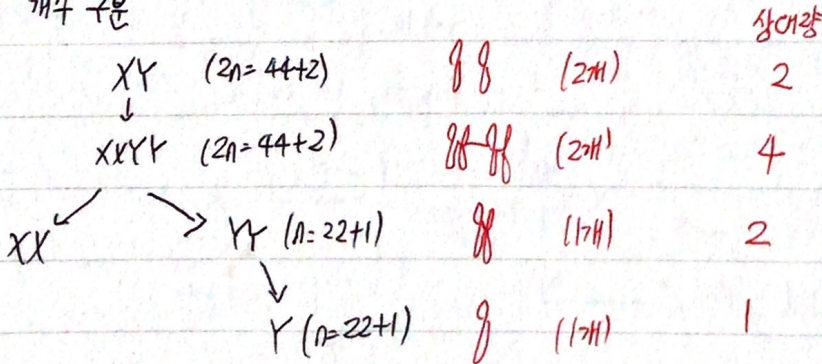 개수 구분
상대량
XY (2n=44+2) (2개) 2
XXYY (2n=44+2) (2개) 4
XX YY (n=22+1) (1개) 2
Y (n=22+1) (1개) 1